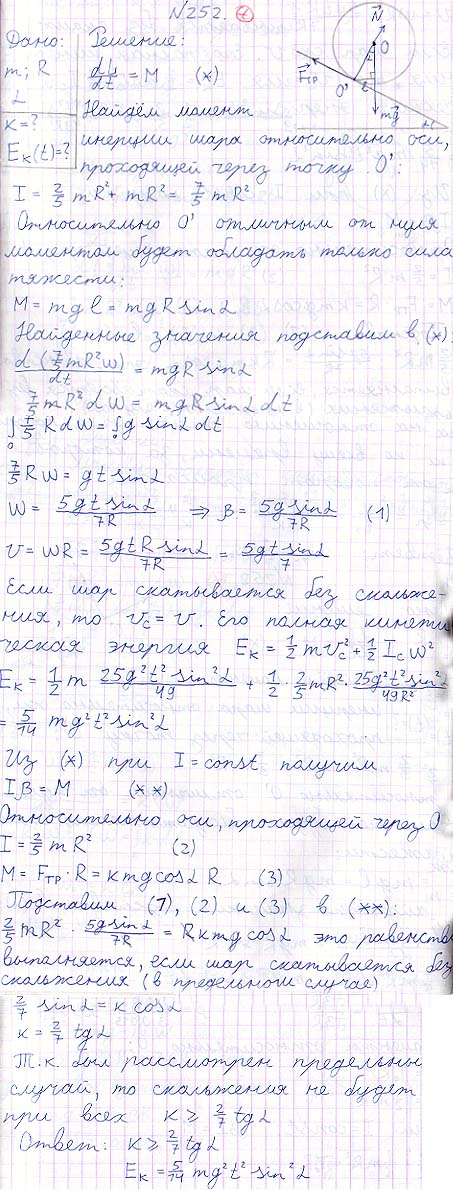 N252. 4
Дано: Решение:
m; R dL/dt = M (*)
α Найдём момент
k=? инерции шара относительно оси,
Eк(t)=? проходящей через точку O':
N⃗
O
F⃗тр
O'
ℓ
mg⃗
α
I = 2/5 mR² + mR² = 7/5 mR²
Относительно O' отличным от нуля
моментом будет обладать только сила
тяжести:
M = mgℓ = mgR sinα
Найденные значения подставим в (*):
d(7/5 mR²ω)/dt = mgR sinα
7/5 mR² dω = mgR sinα dt
∫₀ 7/5 R dω = ∫₀ g sinα dt
7/5 Rω = gt sinα
ω = 5gt sinα/7R ⇒ β = 5g sinα/7R (1)
v = ωR = 5gtR sinα/7R = 5gt sinα/7
Если шар скатывается без скольже-
ния, то vc = v. Его полная кинети
ческая энергия Eк = 1/2 mvc² + 1/2 Ic ω²
Eк = 1/2 m 25g²t² sin²α/49 + 1/2 · 2/5 mR² · 25g²t² sin²α/49R²
= 5/14 mg²t² sin²α
Из (*) при I = const получим
Iβ = M (**)
Относительно оси, проходящей через O
I = 2/5 mR² (2)
M = Fтр · R = kmg cosα R (3)
Подставим (1), (2) и (3) в (**):
2/5 mR² · 5g sinα/7R = Rkmg cosα это равенств
выполняется, если шар скатывается без
скольжения (в предельном случае)
2/7 sinα = k cosα
k = 2/7 tgα
Т.к. был рассмотрен предельны
случай, то скольжения не будет
при всех k ≥ 2/7 tgα
Ответ: k ≥ 2/7 tgα
Eк = 5/14 mg²t² sin²α